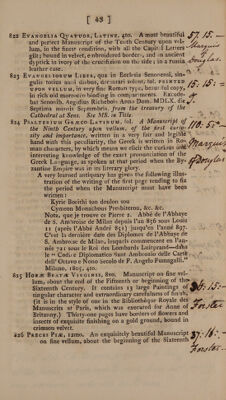 [ 48 ]
822 EVANGELIA QUATUOR, LATINE, 4to. A most beautiful
and perfect Manuscript of the Tenth Century upon vel-
lum, in the finest condition, with all the Capital Letters
gilt; bound in velvet, embroidered borders, and an ancient
dyptick in ivory of the crucifixion on the side; in a russia
leather case.
57. 15. —
Marquis
of
Douglas.
823 EVANGELIORUM LIBER, quæ in Ecclesia Senonensi, sin-
gulis totius anni diebus, decantari solent, fol. PRINTED
UPON VELLUM, in very fine Roman type; beautiful copy
in rich old morocco binding in compartments. Excude-
bat Senonis, Aegidius Richebois Anno Dom. MDLX. die
Septima mensis Septembris, from the treasury of the
Cathedral at Sens. See MS. in Title.
15. 15: —
824 PSALTERIUM GRÆCO LATINUM, fol. A Manuscript of
the Ninth Century upon vellum, of the first curio-
sity and importance, written in a very fair and legible
hand with this peculiarity, the Greek is written in Ro-
man characters, by which means we elicit the curious and
interesting knowledge of the exact pronunciation of the
Greek Language, as spoken at that period when the By-
zantine Empire was in its very glory.
110. 5: —
Marquis
of Douglas
A very learned antiquary has given the following illus-
tration of the writing of the first page tending to fix
the period when the Manuscript must have been
written:
Kyrie Boeithi ton doulon tou
Cymeon Monachous Presbiteron, &c. &c.
Nota, que je trouve ce Pierre 2. Abbé de l'Abbaye
de S. Ambroise de Milan depuis l'an 856 sous Louis
11 (après l'Abbé André 851) jusqu'en l'anné 897.
C'est la derniere date des Diplomes de l'Abbaye de
S. Ambroise de Milan, lesquels commencent en l'an-
née 721 sous le Roi des Lombards Luitprand—dans
le "Codice Diplomatico Sant Ambrosiano delle Carte
dell' Ottavo e Nono Secolo de P. Angelo Fumagalli."
Milano, 1805, 4to.
825 HORÆ BEATÆ VIRGINIS, 8vo. Manuscript on fine vel-
lum, about the end of the Fifteenth or beginning of the
Sixteenth Century. It contains 13 large Paintings of
singular character and extraordinary carefulness of finish,
(it is in the style of one in the Bibliothéque Royale des
Manuscrits at Paris, which was executed for Anne of
Brittany.) Thirty-one pages have borders of flowers and
insects of exquisite finishing on a gold ground, bound in
crimson velvet.
36: 15: —
Forster
826 PRECES PIÆ, 12mo. An exquisitely beautiful Manuscript
on fine vellum, about the beginning of the Sixteenth
37: 16: —
Forster.